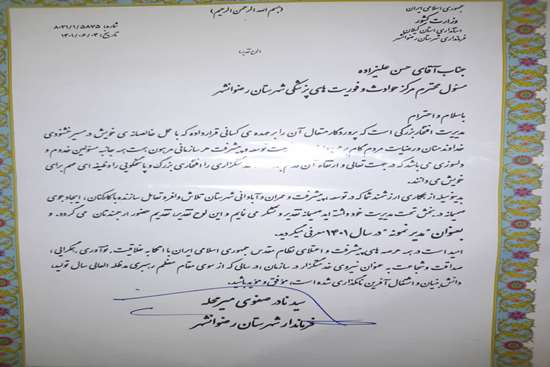 (بسم الله الرحمن الرحیم)
جمهوری اسلامی ایران
وزارت کشور
استانداری استان گیلان
فرمانداری شهرستان رضوانشهر
شماره: ۸۰۲۱/۱/۵۸۷۵
تاریخ: ۱۴۰۱/۰۶/۰۳
لوح تقدیر
جناب آقای حسن علیزاده
مسئول محترم مرکز حوادث و فوریت های پزشکی شهرستان رضوانشهر
با سلام و احترام
مدیریت افتخار بزرگی است که پروردگار متعال آن را بر عهده ی کسانی قرار داده که با عمل خالصانه ی خویش در مسیر خشنودی
خداوند منان و رضایت مردم گام بر توسعه و پیشرفت هر سازمانی مرهون همت همه جانبه مسئولین خدوم و
دلسوزی می باشد که در جهت تعالی و ارتقاء آن خدمتگزاری را افتخاری بزرگ و پاسخگویی را وظیفه ای مهم برای
خویش می دانند.
بدینوسیله از همکاری ارزشمند شما که در توسعه و پیشرفت و عمران و آبادانی شهرستان تلاش وافر و تعامل سازنده با کارکنان، ایجاد جوی
صمیمانه در بخش تحت مدیریت خود داشته اید صمیمانه تقدیر و تشکر می نمایم و این لوح تقدیر، تقدیم حضور ارجمندتان می گردد. و
بعنوان "مدیر نمونه" در سال ۱۴۰۱ معرفی میگردید.
امید است در همه عرصه های پیشرفت و اعتلای نظام مقدس جمهوری اسلامی ایران با اتکا به خلاقیت، نوآوری، همگرایی،
صداقت و شجاعت به عنوان نیروی خدمتگزار در سازمان و در سالی که از سوی مقام معظم رهبری مدظله العالی سال تولید،
دانش بنیان و اشتغال آفرین نامگذاری شده است، موفق و موید باشید.
سید نادر صفوی میرمحله
فرماندار شهرستان رضوانشهر